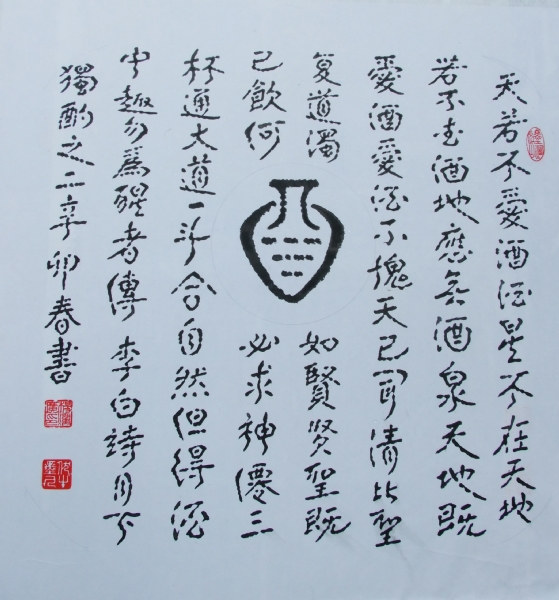 天若不愛酒酒星不在天地
若不爱酒地應無酒泉天地既
愛酒愛酒不愧天已聞清比聖
复道濁如賢贤聖既
已飲何必求神僊三
杯通大道一斗合自然但得酒
中趣勿爲醒者傳 李白詩月下
獨酌之二辛卯春書